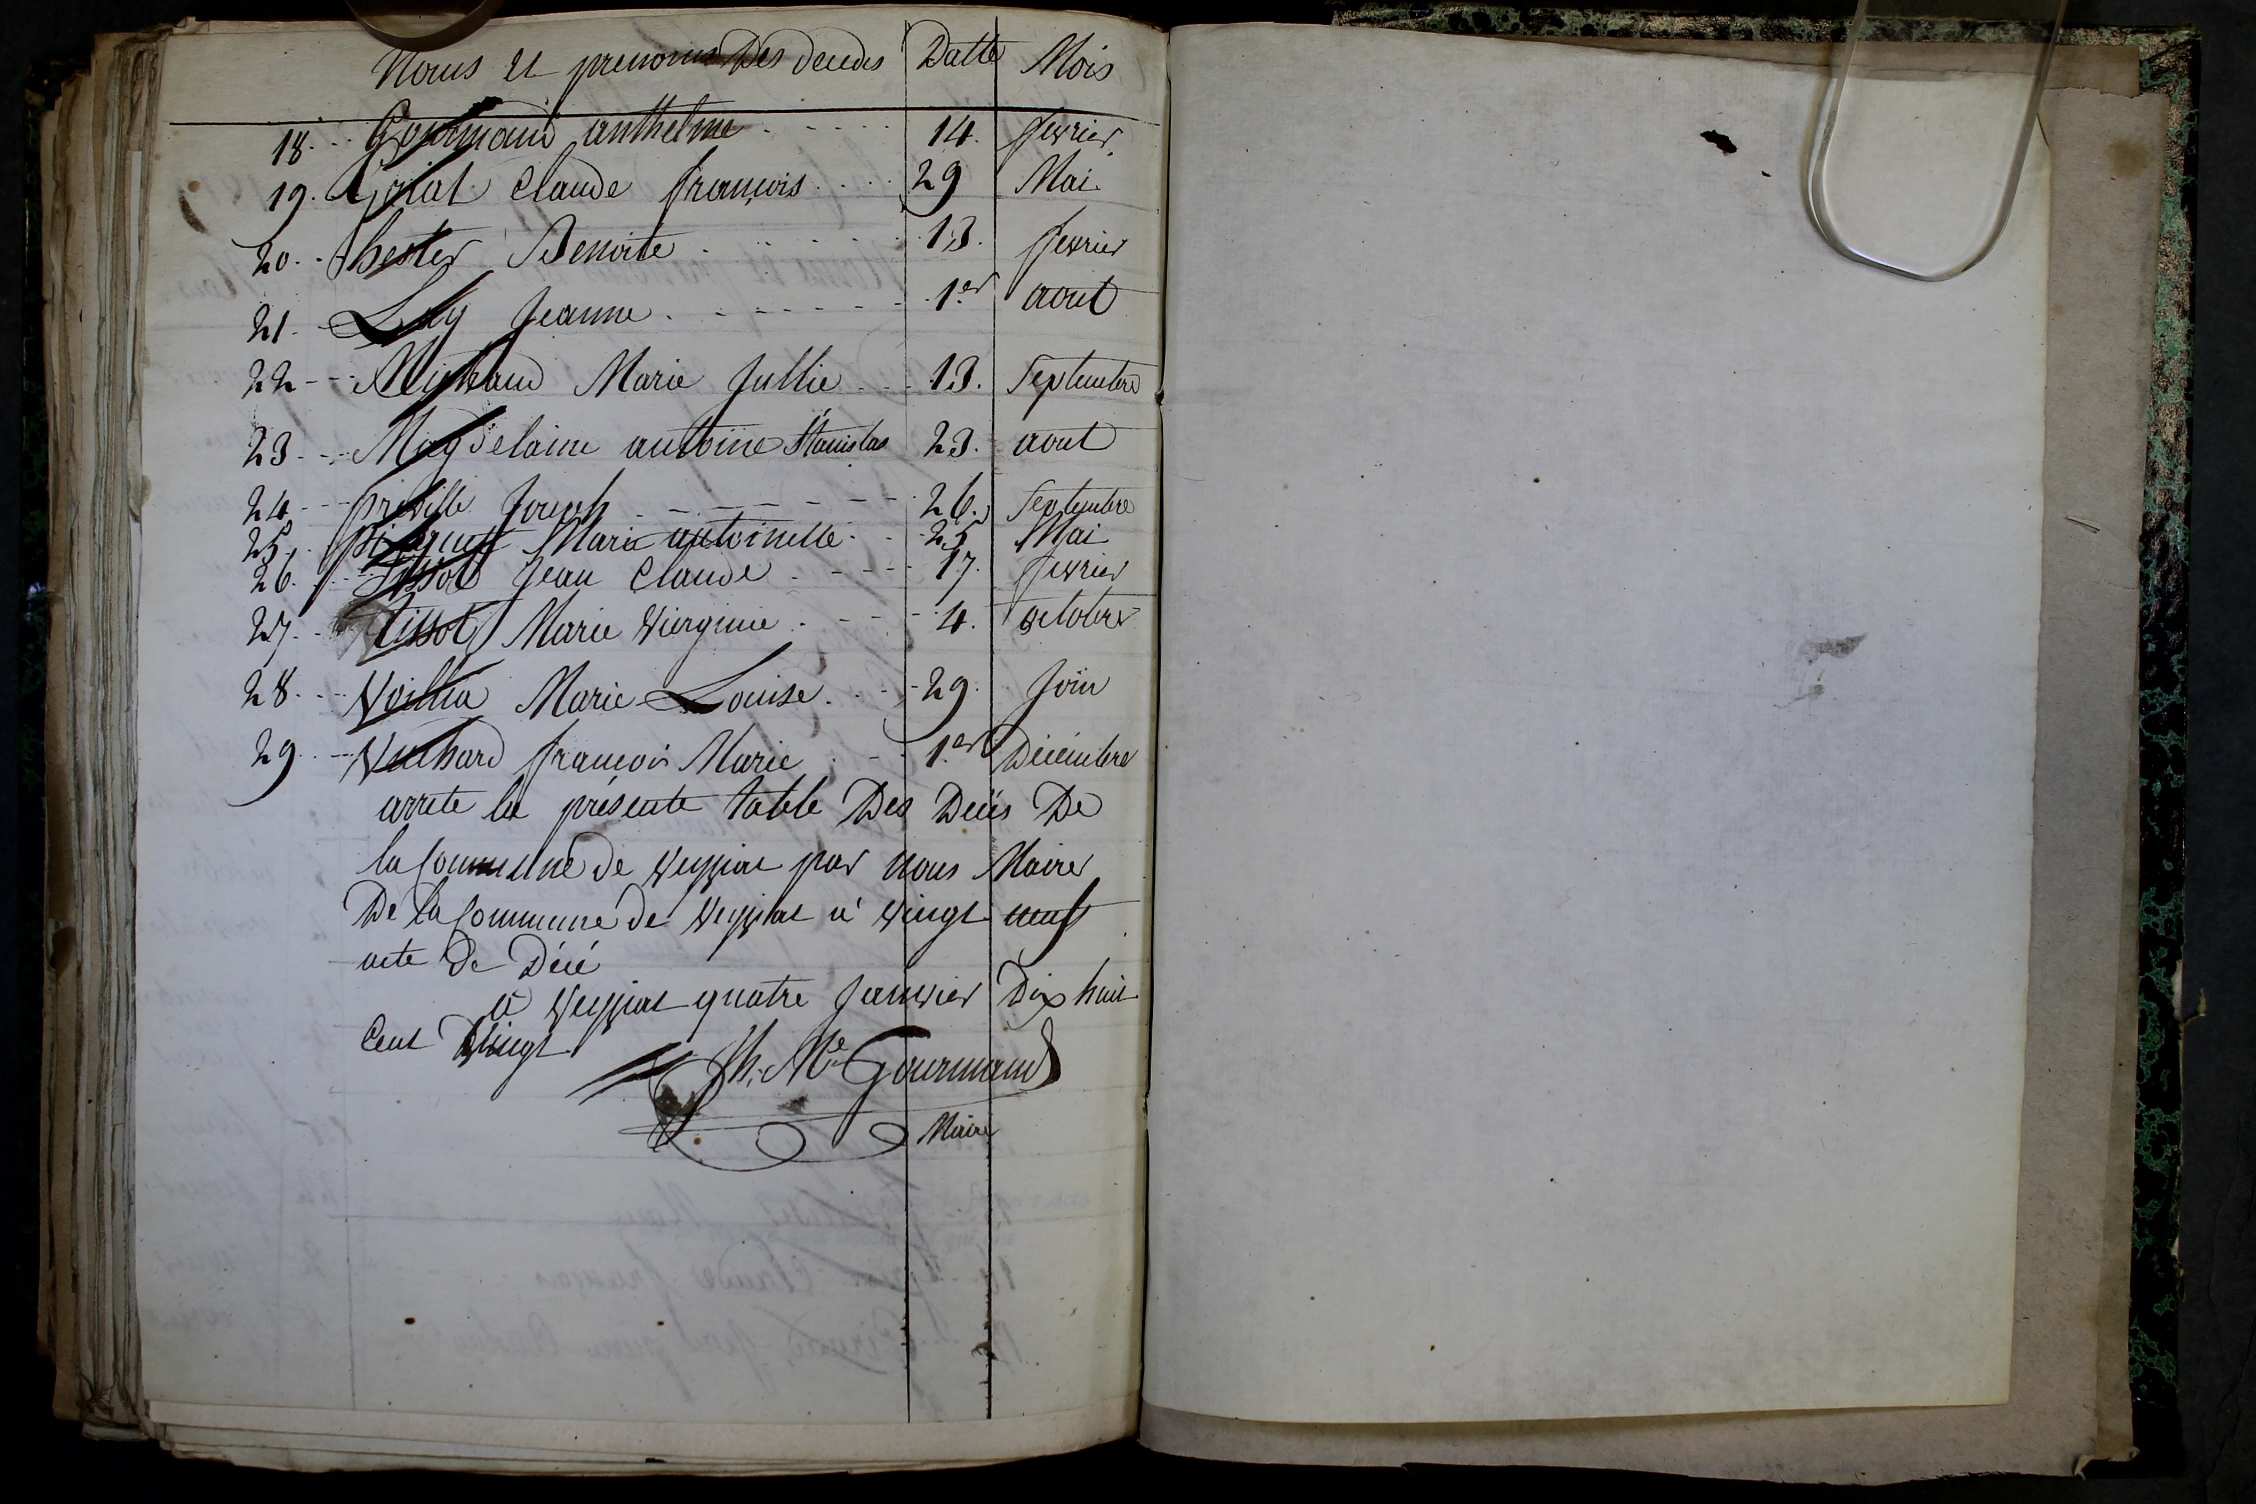 Noms et prenoms Des decedes Datte Mois
18. Gourmand anthelme 14. fevrier
19. Goiat Claude françois 29 Mai
20. hester Benoite 13. fevrier
21. Luy Jeanne 1.er aout
22 Michaud Marie Jullie 13. Septembre
23 Magdelaine antoine Stanislas 23. aout
24 priville Joseph 26. Septembre
25. Marie antoinette 25 Mai
26. Tissot Jean Claude 17. fevrier
27. Tissot Marie Viergine 4. octobre
28. Voillia Marie Louise 29. Join
29 Vuchard françois Marie 1.er Décémbre
arrete la présente table Des Decés De
la Commune de Veyziat par nous Maire
De la Commune de Veyziat a vingt neuf
acte De Décé
a Veyziat quatre Janvier Dix huit
Cent vingt
Jh. Me Gourmand
Maire